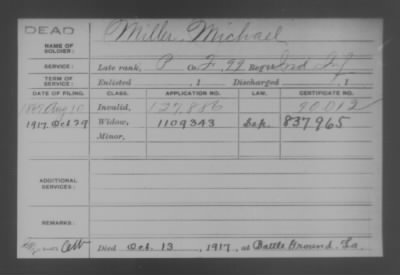 DEAD
NAME OF SOLDIER: Miller, Michael
SERVICE: Late rank, P Co. F, 99 Reg't Ind Inf
TERM OF SERVICE: Enlisted , 1 Discharged , 1
DATE OF FILING. CLASS. APPLICATION NO. LAW. CERTIFICATE NO.
1867 Aug 15 Invalid, 127,886 90,012
1917. Oct 29 Widow, 1109343 837,965
Minor,
ADDITIONAL SERVICES:
REMARKS:
Died Oct. 13, 1917, at Battle Ground,